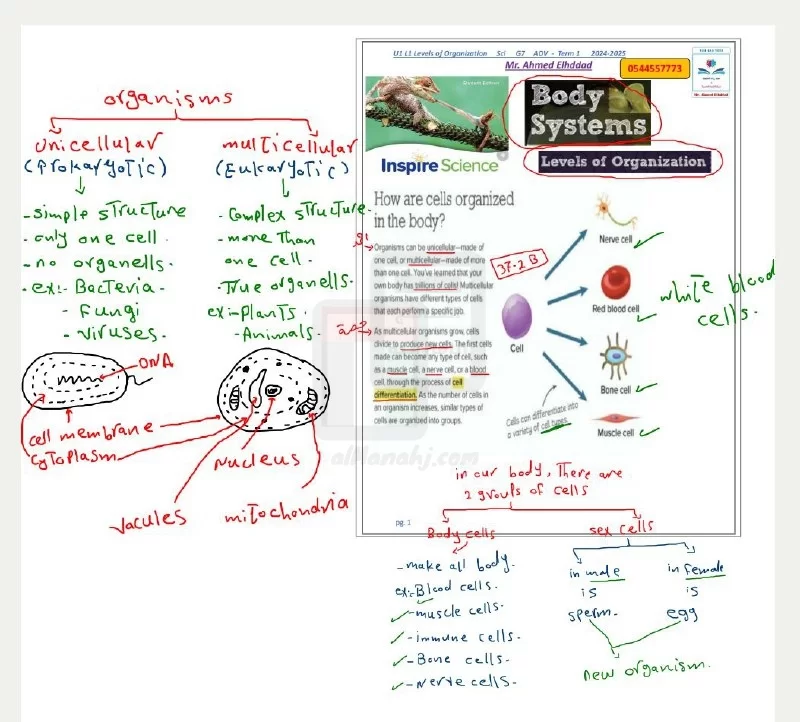 U1 L1 Levels of Organization Sci G7 ADV - Term 1 2024-2025
Mr. Ahmed Elhddad
0544557773
Mr. Ahmed Elhddad
Body
Systems
Levels of Organization
Inspire Science
How are cells organized
in the body?
Organisms can be unicellular—made of
one cell, or multicellular—made of more
than one cell. You've learned that your
own body has billions of cells! Multicellular
organisms have different types of cells
that each perform a specific job.
As multicellular organisms grow, cells
divide to produce new cells. The first cells
made can become any type of cell, such
as a muscle cell, a nerve cell, or a blood
cell, through the process of cell
differentiation. As the number of cells in
an organism increases, similar types of
cells are organized into groups.
37.2 B
Cell
Nerve cell
Red blood cell
white blood
cells.
Bone cell
Muscle cell
Cells can differentiate into
a variety of cell types.
pg. 1
alManahj.com
organisms
unicellular
(Prokaryotic)
- simple structure
- only one cell.
- no organells.
- ex:- Bacteria.
- Fungi
- viruses.
multicellular
(Eukaryotic)
- Complex structure.
- more than
one cell.
- True organells.
ex:- plants.
- Animals.
DNA
cell membrane
cytoplasm
Nucleus
vacules
mitochondria
in our body, There are
2 groups of cells
Body cells
- make all body.
ex:- Blood cells.
- muscle cells.
- immune cells.
- Bone cells.
- Nerve cells.
sex cells
in male
is
sperm.
in female
is
egg
new organism.